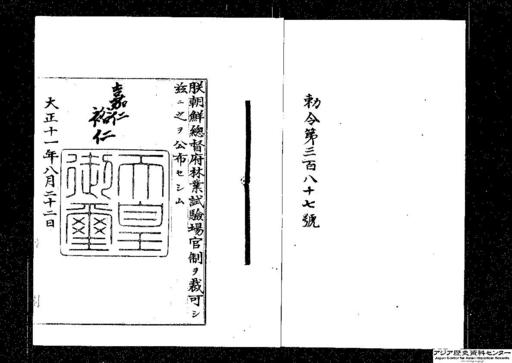 勅令第三百八十七號
朕朝鮮總督府林業試驗場官制ヲ裁可シ
玆ニ之ヲ公布セシム
嘉仁
裕仁
天皇
御璽
大正十一年八月二十二日
アジア歴史資料センター
Japan Center for Asian Historical Records